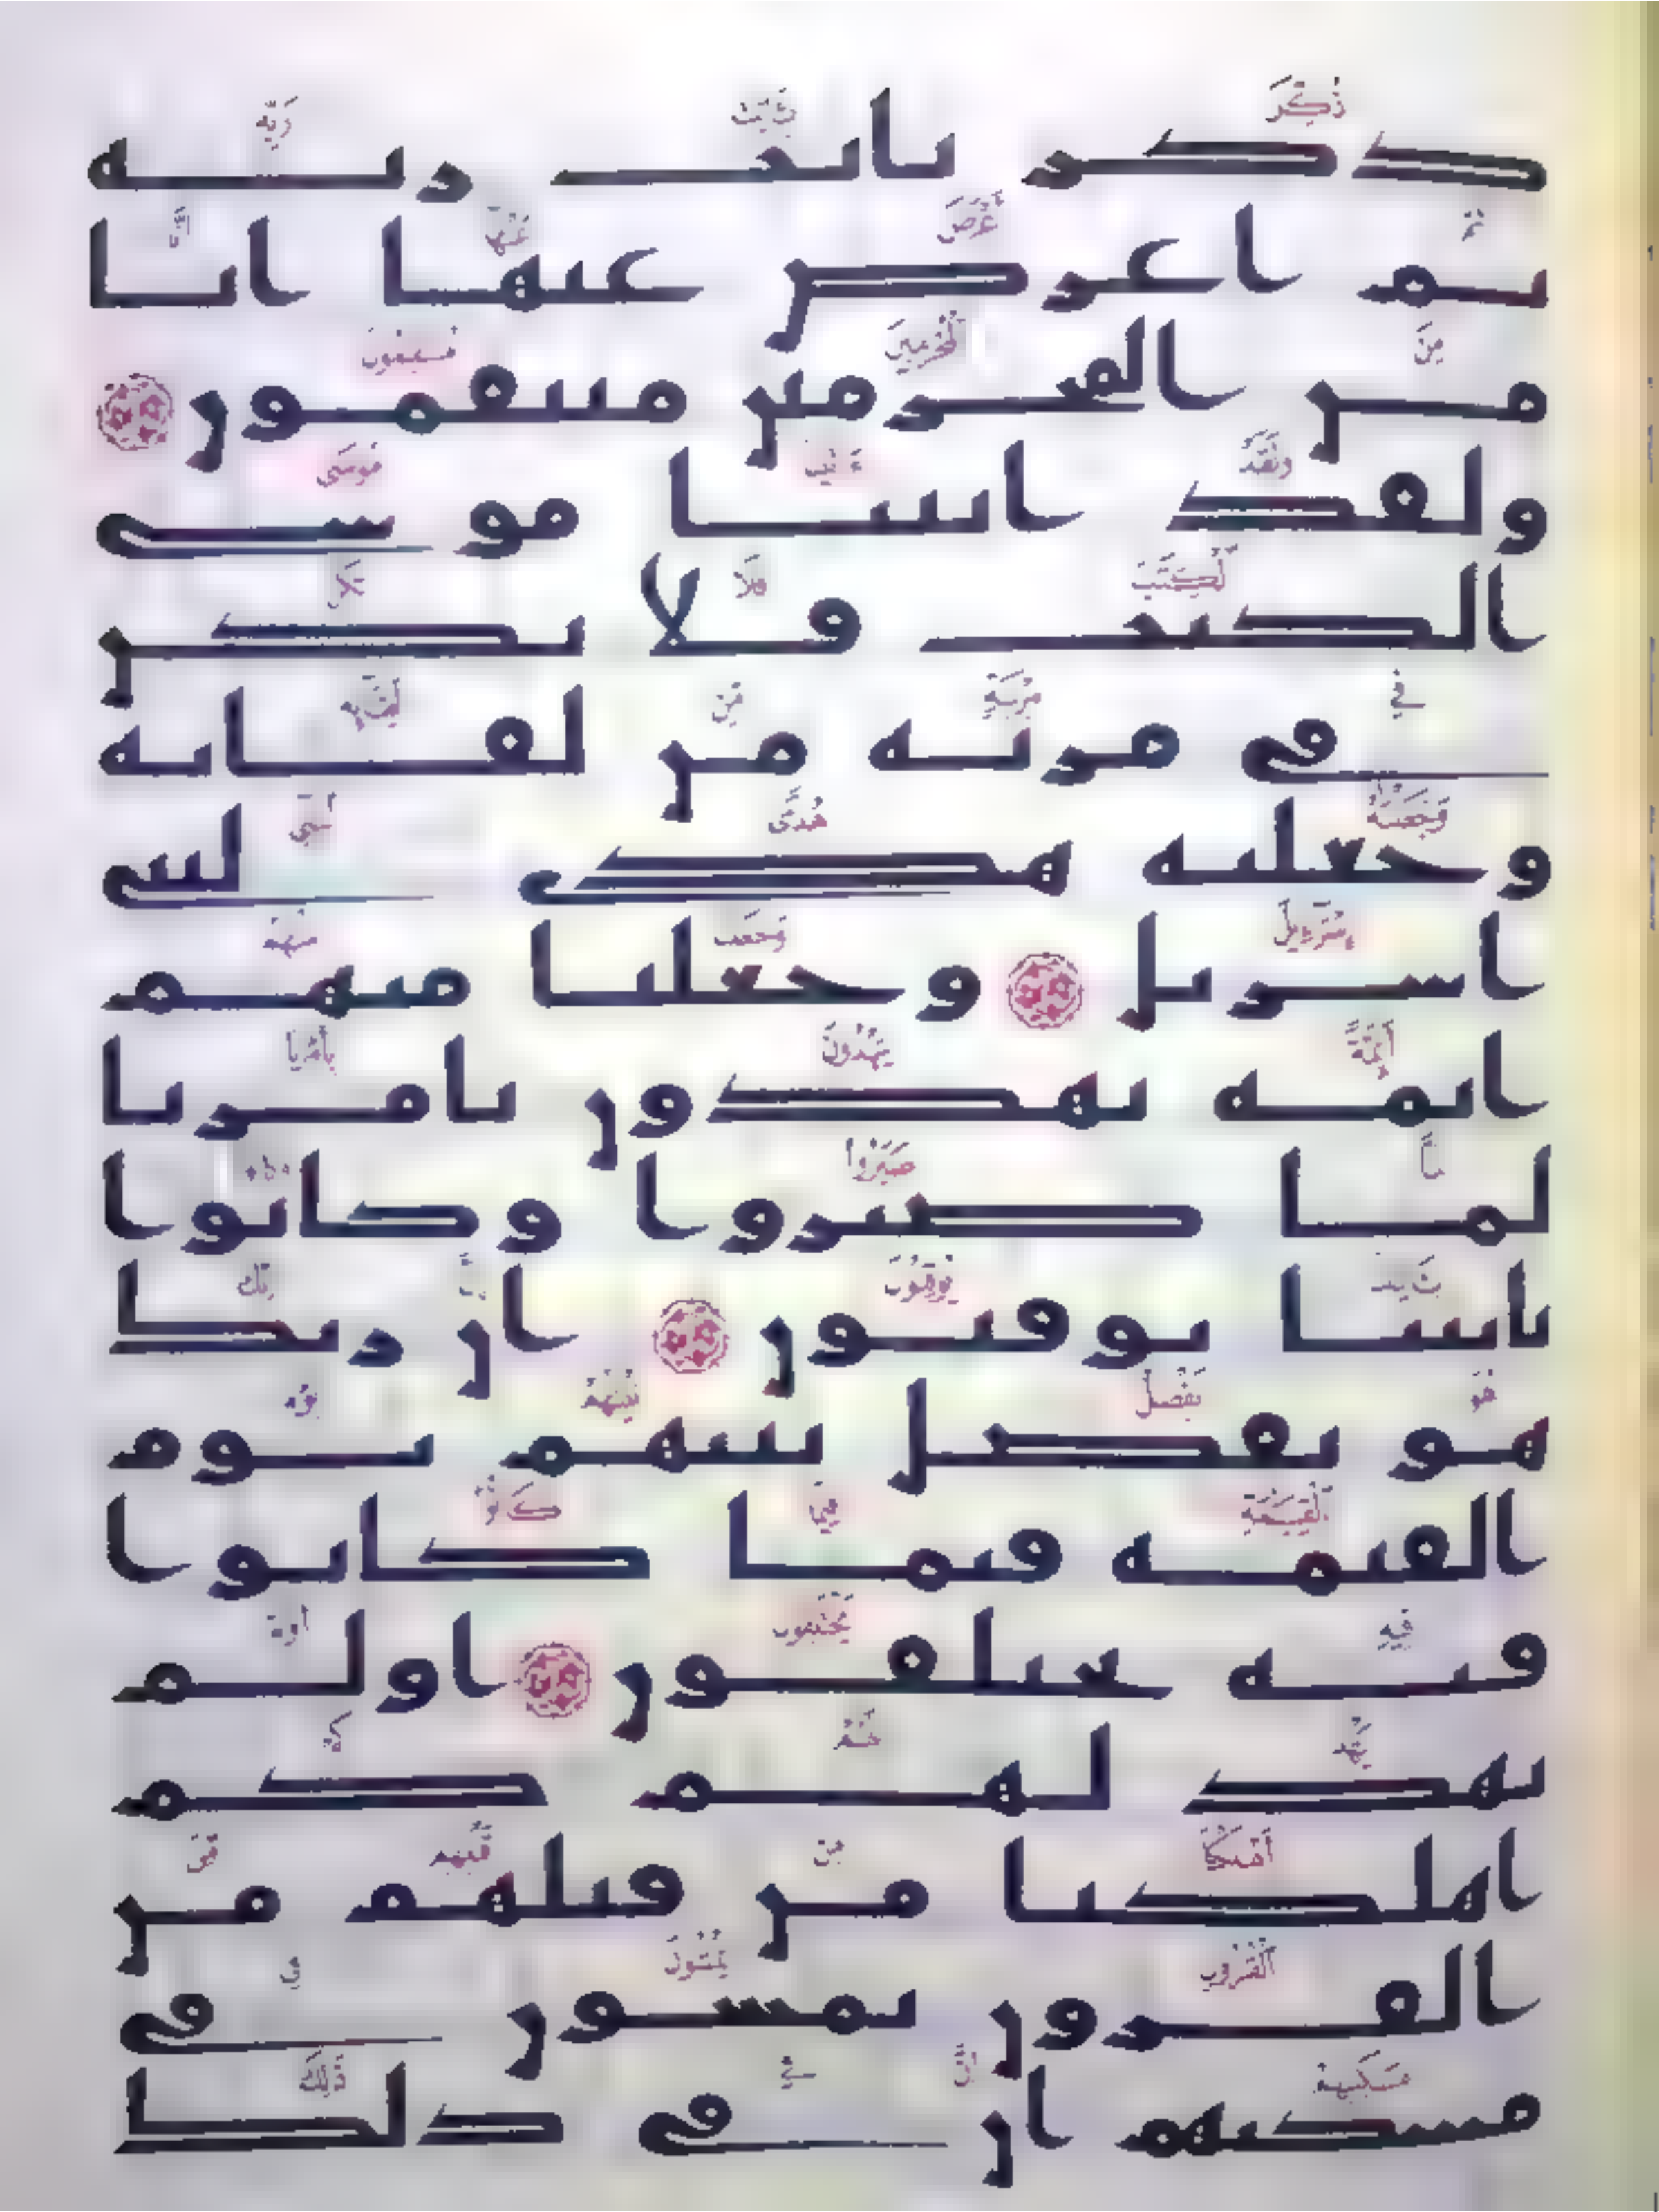 ذكر بايت ربه
ثم اعرض عنها انا
من المجرمين منتقمون
ولقد اتينا موسى
الكتب فلا تكن
في مرية من لقائه
وجعلنه هدى لبني
اسريل وجعلنا منهم
ايمة يهدون بامرنا
لما صبروا وكانوا
بايتنا يوقنون ان ربك
هو يفصل بينهم يوم
القيمة فيما كانوا
فيه يختلفون اولم
يهد لهم كم
اهلكنا من قبلهم من
القرون يمشون في
مسكنهم ان في ذلك